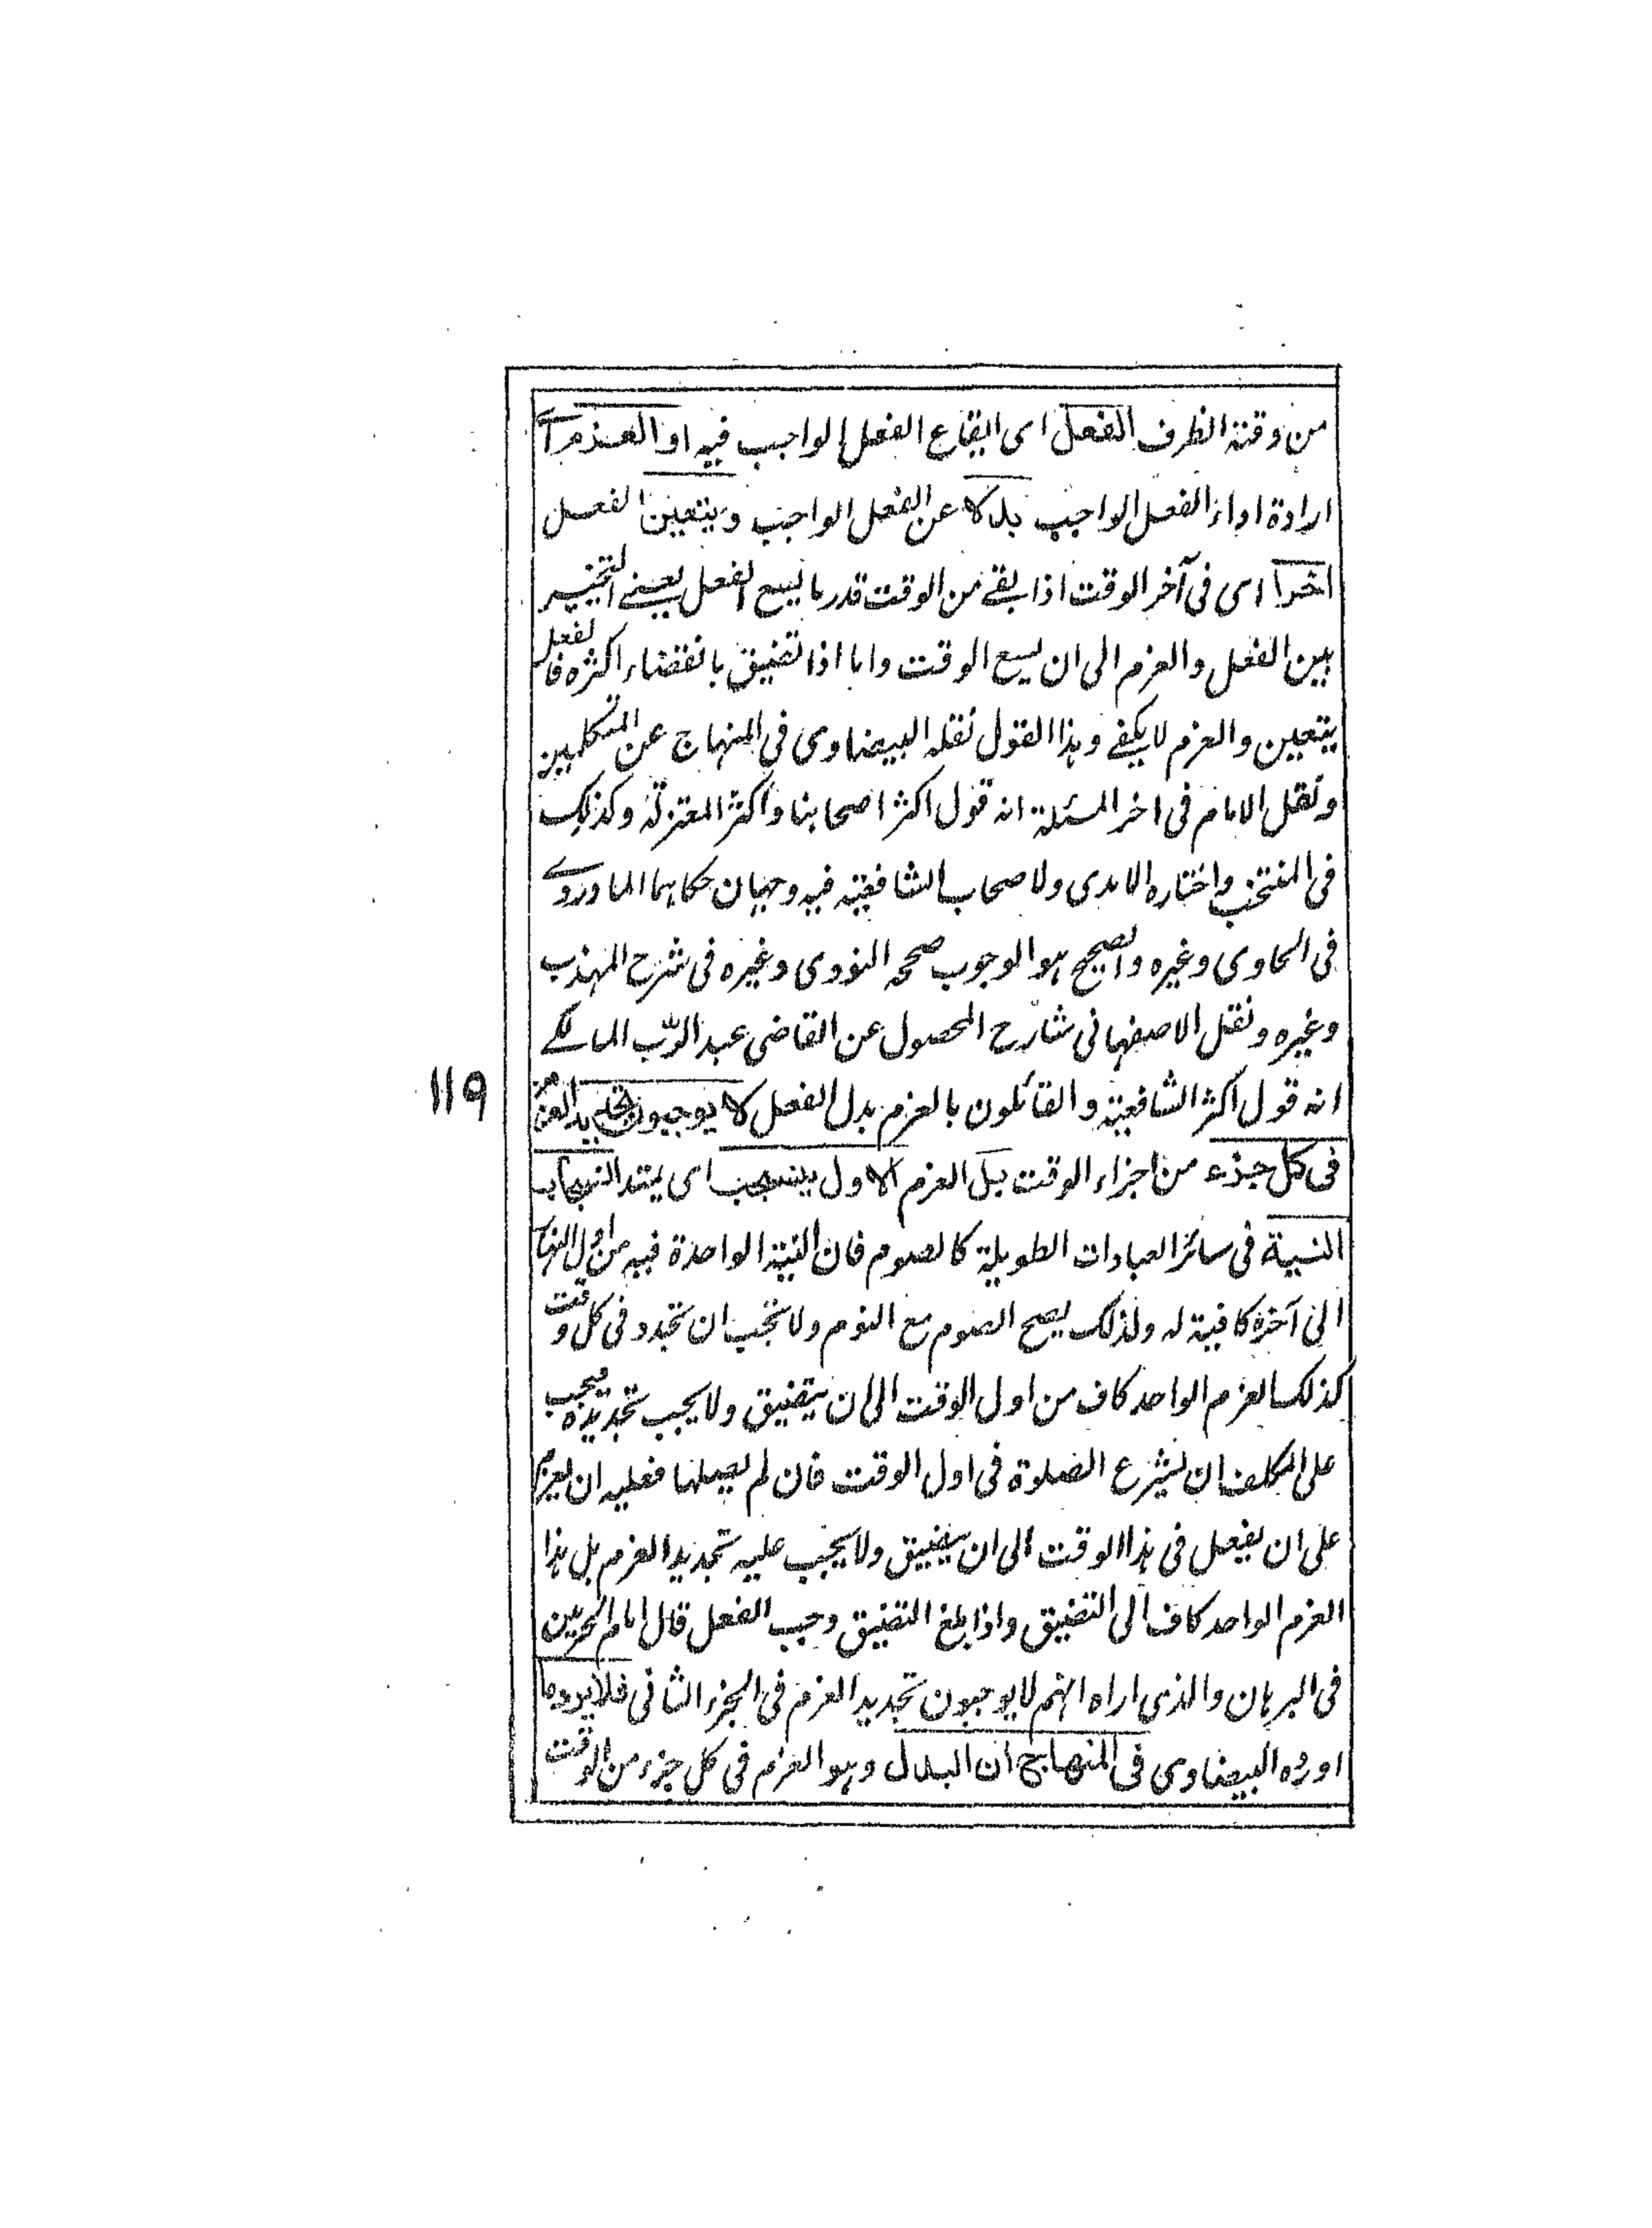 من وقته الظرف الفعل اى ايقاع الفعل الواجب فيه او العزم اے
ارادة اداء الفعل الواجب بدلا عن الفعل الواجب ويتعين الفعل
اخرا اى فى آخر الوقت اذا بقے من الوقت قدر ما يسع الفعل يعنے التخيير
بين الفعل والعزم الى ان يسع الوقت واما اذا تضيق بانقضاء اكثره فالفعل
يتعين والعزم لا يكفے وهذا القول نقله البيضاوى فى المنهاج عن المتكلمين
ونقل الامام فى اخر المسئلة انه قول اكثر اصحابنا واكثر المعتزلة وكذلك
فى المنتخب واختاره الامدى ولاصحاب الشافعية فيه وجهان حكاهما الماوردے
فى الحاوى وغيره والصحيح هو الوجوب صححه النووى وغيره فى شرح المهذب
وغيره ونقل الاصفهانى شارح المحصول عن القاضى عبد الرب المالكے
انه قول اكثر الشافعية والقائلون بالعزم بدل الفعل لا يوجبون تجديد العزم
119
فى كل جزء من اجزاء الوقت بل العزم الاول ينسحب اى يمتد انسحاب
النية فى سائر العبادات الطويلة كالصوم فان النية الواحدة فيه من اول النهار
الى آخره كافية له ولذلك يصح الصوم مع النوم ولا تجب ان تجدد فى كل وقت
كذلك العزم الواحد كاف من اول الوقت الى ان يتضيق ولا يجب تجديده فيجب
على المكلف ان يشرع الصلوة فى اول الوقت فان لم يصلها فعليه ان يعزم
على ان يفعل فى هذا الوقت الى ان يتضيق ولا يجب عليه تجديد العزم بل هذا
العزم الواحد كاف الى التضيق واذا بلغ التضيق وجب الفعل قال امام الحرمين
فى البرهان والذى اراه انهم لا يوجبون تجديد العزم فى الجزء الثانى فلا يرد ما
اورده البيضاوى فى المنهاج ان البدل وهو العزم فى كل جزء من الوقت